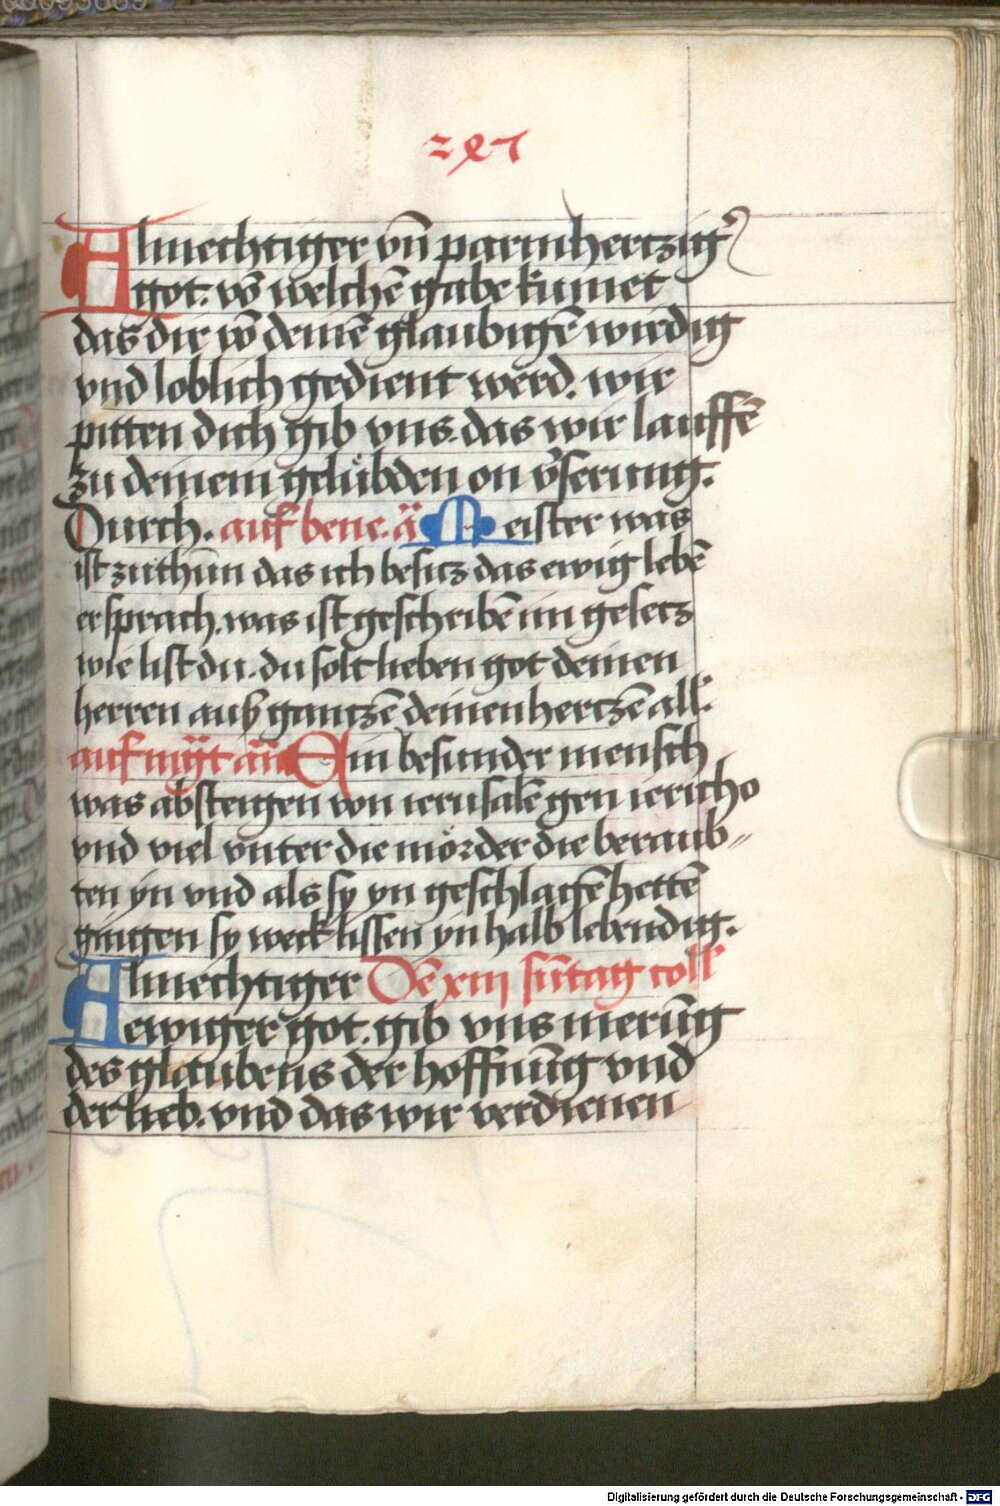 247
Almechtiger vn̄ parmhertzig
got. vō welchē gabe kumet
das dir vō deinē glaubigē wirdig
vnd loblich gedient werd. wir
pitten dich gib vns. das wir lauffē
zu deinem gelübden on v̾serung.
Durch. auf bene. ā Meister was
ist zuthun das ich besitz das ewig lebē
er sprach. was ist geschribē im gesetz
wie list du. du solt lieben got deinen
herren auß gantzē deinen hertzē all.
auf mgt̄ an̄ Ain besunder mensch
was absteigen von ierusalē gen iericho
vnd viel vnter die mörder die beraub〃
ten yn vnd als sy yn geschlagē hettē
gingen sy weck lissen yn halb lebendig.
Almechtiger Dē xiij sūtag coll̄
ewiger got. gib vns merūg
des glaubens der hoffnūg vnd
der lieb. vnd das wir verdienen
Digitalisierung gefördert durch die Deutsche Forschungsgemeinschaft - DFG